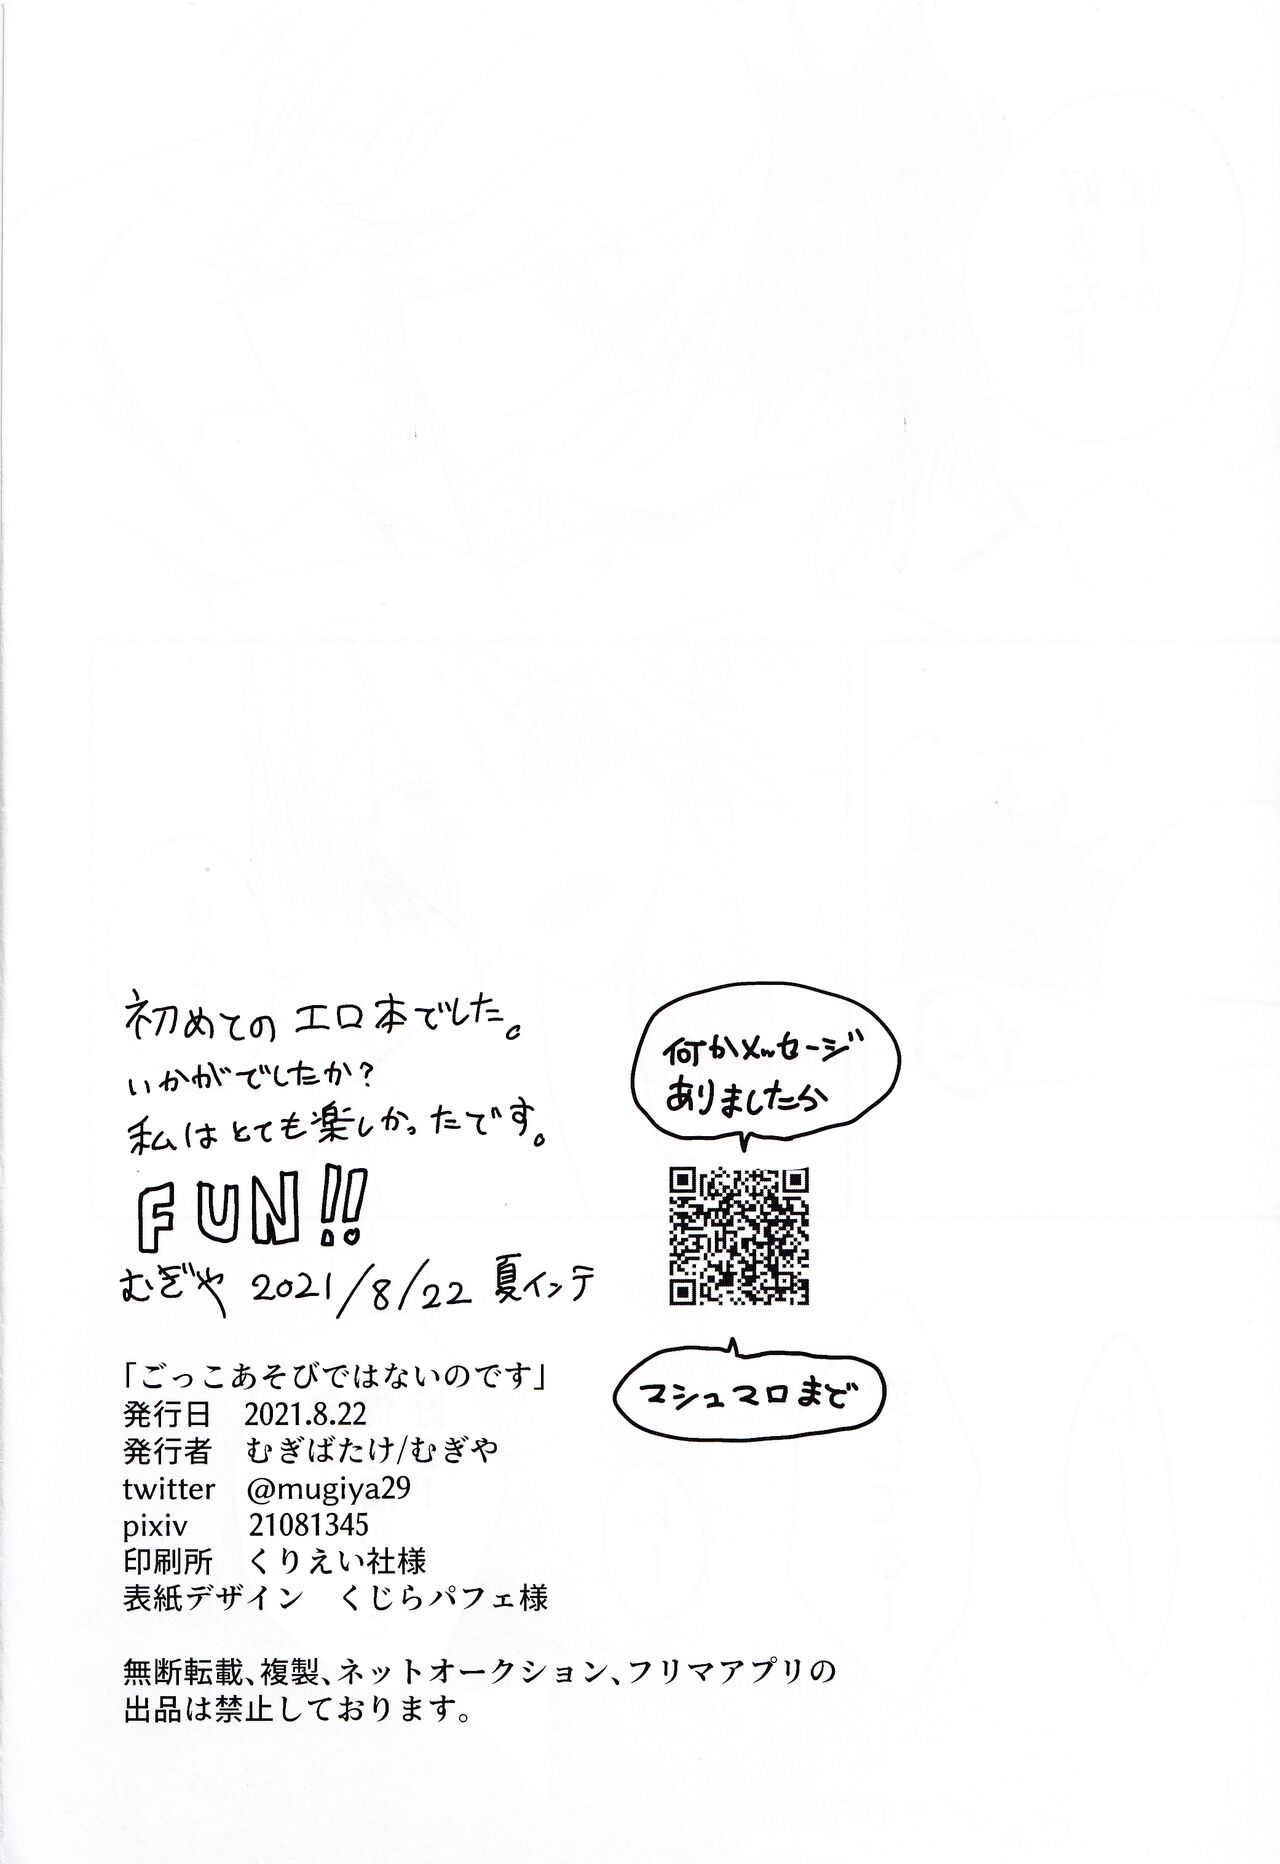 初めてのエロ本でした。
いかがでしたか?
私はとても楽しかったです。
FUN!!
むぎや 2021/8/22 夏インテ
何かメッセージ
ありましたら
マシュマロまで
「ごっこあそびではないのです」
発行日 2021.8.22
発行者 むぎばたけ/むぎや
twitter @mugiya29
pixiv 21081345
印刷所 くりえい社様
表紙デザイン くじらパフェ様
無断転載、複製、ネットオークション、フリマアプリの
出品は禁止しております。